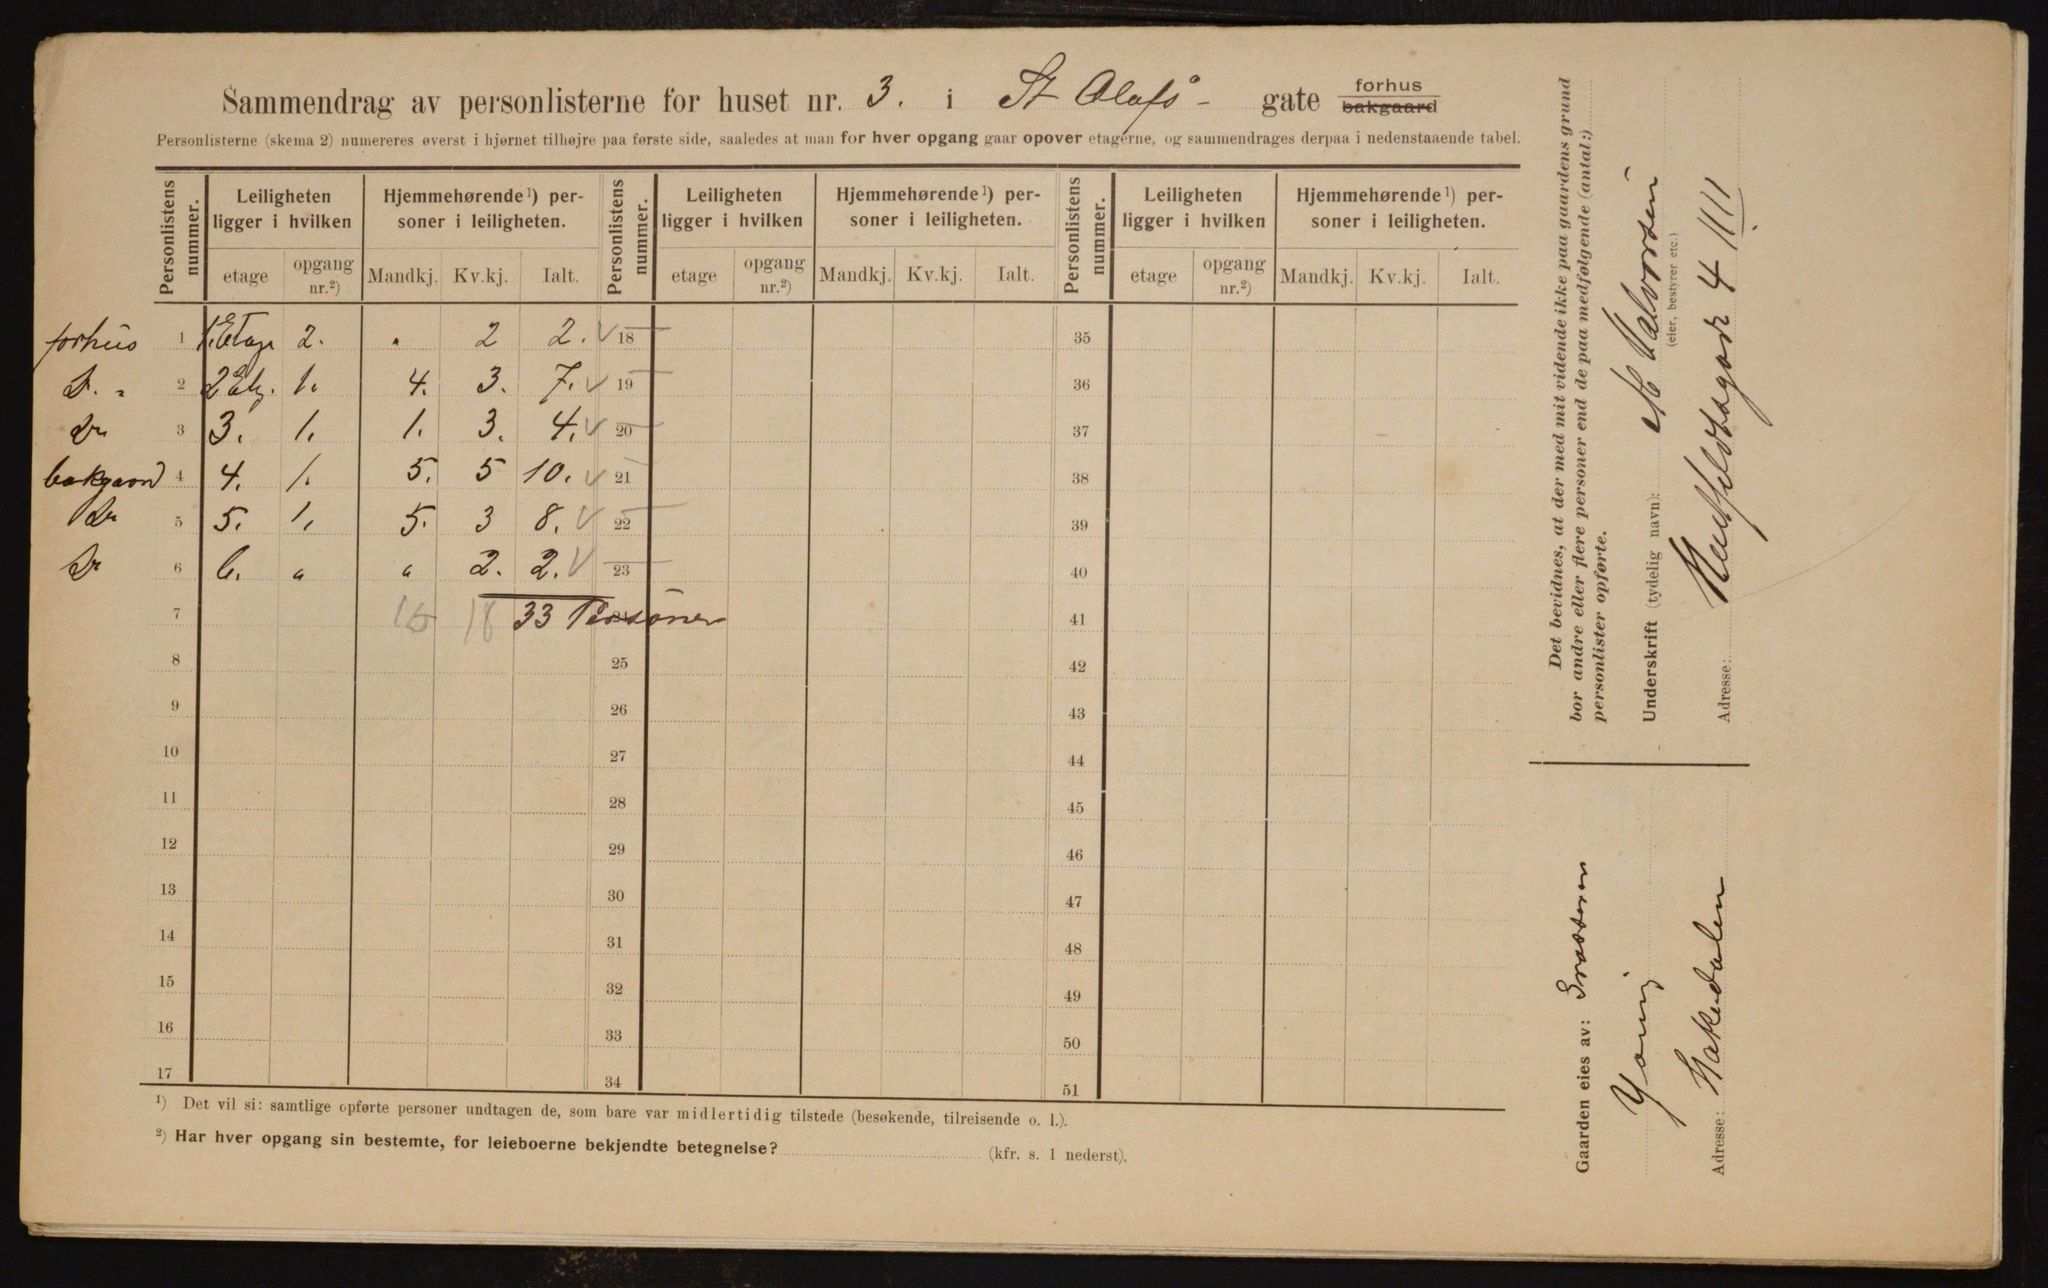 Sammendrag av personlisterne for huset nr. 3. i St Olafs - gate forhus bakgaard
Personlisterne (skema 2) numereres øverst i hjørnet tilhøjre paa første side, saaledes at man for hver opgang gaar opover etagerne, og sammendrages derpaa i nedenstaaende tabel.
Personlistens nummer. Leiligheten ligger i hvilken Hjemmehørende ¹) personer i leiligheten. Personlistens nummer. Leiligheten ligger i hvilken Hjemmehørende ¹) personer i leiligheten. Personlistens nummer. Leiligheten ligger i hvilken Hjemmehørende ¹) personer i leiligheten.
etage opgang nr.²) Mandkj. Kv.kj. Ialt. etage opgang nr.²) Mandkj. Kv.kj. Ialt. etage opgang nr.²) Mandkj. Kv.kj. Ialt.
forhus 1 1. Etage 2. " 2 2. 18 35
D. " 2 2 Etg. 1. 4. 3. 7. 19 36
Do 3 3. 1. 1. 3. 4. 20 37
bakgaard 4 4. 1. 5. 5 10. 21 38
Do 5 5. 1. 5. 3 8. 22 39
Do 6 6. " " 2. 2. 23 40
7 15 18 33 Personer 41
8 25 42
9 26 43
10 27 44
11 28 45
12 29 46
13 30 47
14 31 48
15 32 49
16 33 50
17 34 51
¹) Det vil si: samtlige opførte personer undtagen de, som bare var midlertidig tilstede (besøkende, tilreisende o. l.).
²) Har hver opgang sin bestemte, for leieboerne bekjendte betegnelse? (kfr. s. 1 nederst).
Det bevidnes, at der med mit vidende ikke paa gaardens grund
bor andre eller flere personer end de paa medfølgende (antal:)
personlister opførte.
Underskrift (tydelig navn): M Halvorsen
(eier, bestyrer etc.)
Adresse: Huitfeldtsgade 4 IIII
Gaarden eies av:
Young
Adresse: Hakedalen